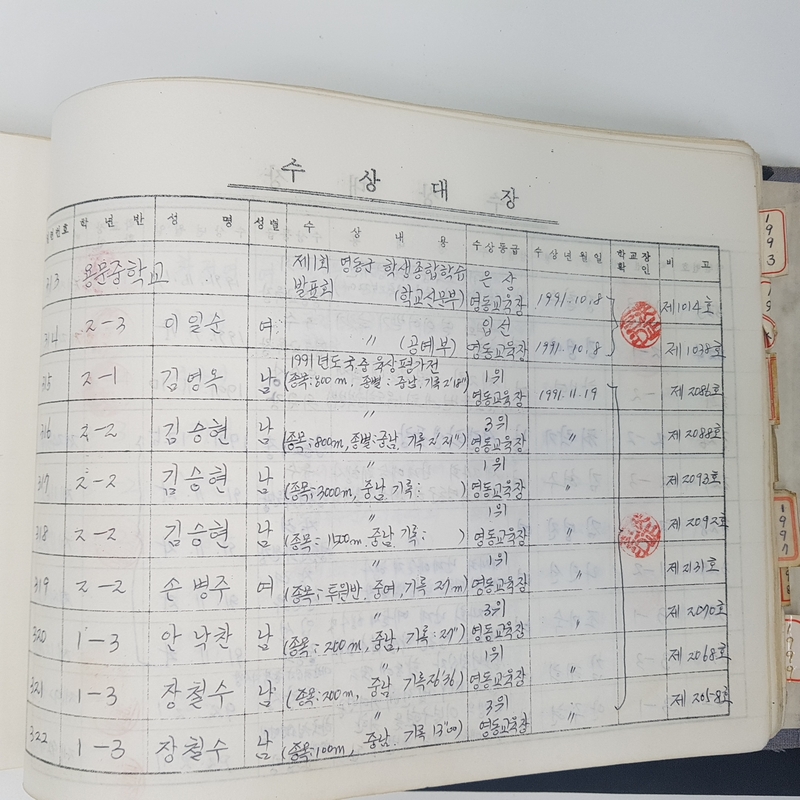 수 상 대 장
번호 학 년 반 성 명 성별 수 상 내 용 수상등급 수 상 년 월 일 학교장 확 인 비 고
313 용문중학교 제1회 영동군 학생종합학습 은 상
발표회 (학교신문부) 영동교육장 1991.10.8 제1014호
314 2-3 이일순 여 〃 (공예부) 입선 영동교육장 1991.10.8 제1038호
315 2-1 김영옥 남 1991년도 국.중 육상평가전 1위
(종목:800m, 종별:중남, 기록2'18") 영동교육장 1991.11.19 제2086호
316 2-2 김승현 남 〃 3위
(종목:800m, 종별:중남, 기록2'21") 영동교육장 〃 제2088호
317 2-2 김승현 남 〃 1위
(종목:3000m, 중남, 기록: ) 영동교육장 〃 제2093호
318 2-2 김승현 남 〃 1위
(종목:1500m, 중남, 기록: ) 영동교육장 〃 제2092호
319 2-2 손병주 여 〃 1위
(종목:투원반, 중여, 기록 m) 영동교육장 〃 제2131호
320 1-3 안낙찬 남 〃 3위
(종목:200m, 중남, 기록:27") 영동교육장 〃 제2070호
321 1-3 장철수 남 〃 1위
(종목:200m, 중남, 기록26"36) 영동교육장 〃 제2068호
322 1-3 장철수 남 〃 3위
(종목:100m, 중남, 기록13"00) 영동교육장 〃 제2058호
1993
1997
1999